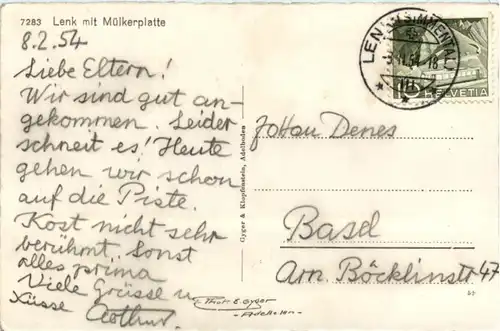 7283 Lenk mit Mülkerplatte
8.2.54
Liebe Eltern!
Wir sind gut an-
gekommen. Leider
schneit es! Heute
gehen wir schon
auf die Piste.
Kost nicht sehr
berühmt. Sonst
alles prima
Viele Grüsse u
Küsse Arthur.
Gyger & Klopfenstein, Adelboden
LENK (SIMMENTAL)
54-18
HELVETIA
Denes
Basel
Arn. Böcklinstr 47
Phot. E. Gyger
Adelboden